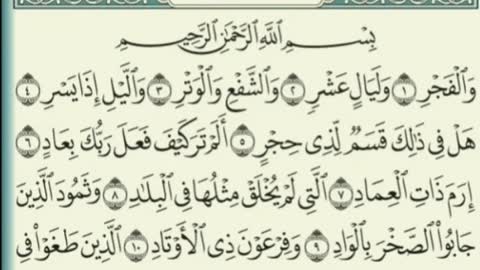 بِسْمِ اللَّهِ الرَّحْمَٰنِ الرَّحِيمِ
وَالْفَجْرِ ١ وَلَيَالٍ عَشْرٍ ٢ وَالشَّفْعِ وَالْوَتْرِ ٣ وَاللَّيْلِ إِذَا يَسْرِ ٤
هَلْ فِي ذَٰلِكَ قَسَمٌ لِّذِي حِجْرٍ ٥ أَلَمْ تَرَ كَيْفَ فَعَلَ رَبُّكَ بِعَادٍ ٦
إِرَمَ ذَاتِ الْعِمَادِ ٧ الَّتِي لَمْ يُخْلَقْ مِثْلُهَا فِي الْبِلَادِ ٨ وَثَمُودَ الَّذِينَ
جَابُوا الصَّخْرَ بِالْوَادِ ٩ وَفِرْعَوْنَ ذِي الْأَوْتَادِ ١٠ الَّذِينَ طَغَوْا فِي